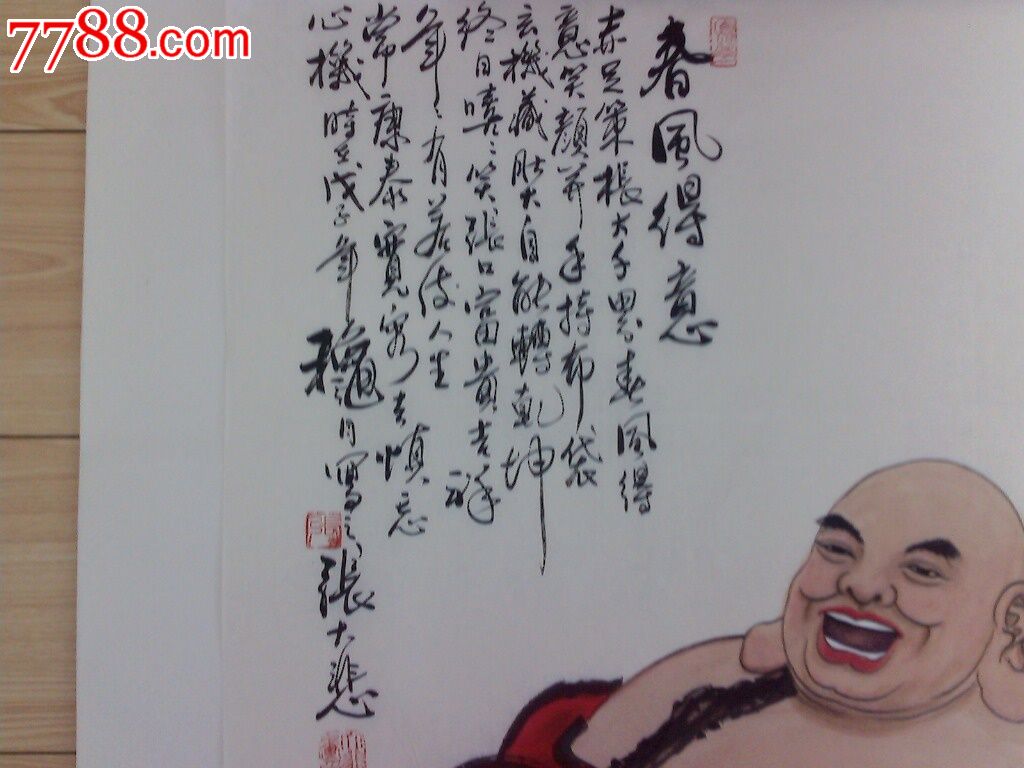 7788.com
春風得意
赤足策杖大千界春風得
意笑顏開手持布袋
玄機藏肚大自能轉乾坤
終日嘻:笑張口富貴吉祥
年:有若彼人生
常康泰寬容者慎忘
心機時在戊子年
月寫之張大悲